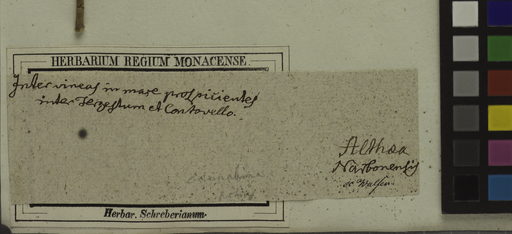 HERBARIUM REGIUM MONACENSE.
Inter vineas in mare prospicientes
inter Tergestum et Contovello.
Althaa
Narbonensis
Herbar. Schreberianum.